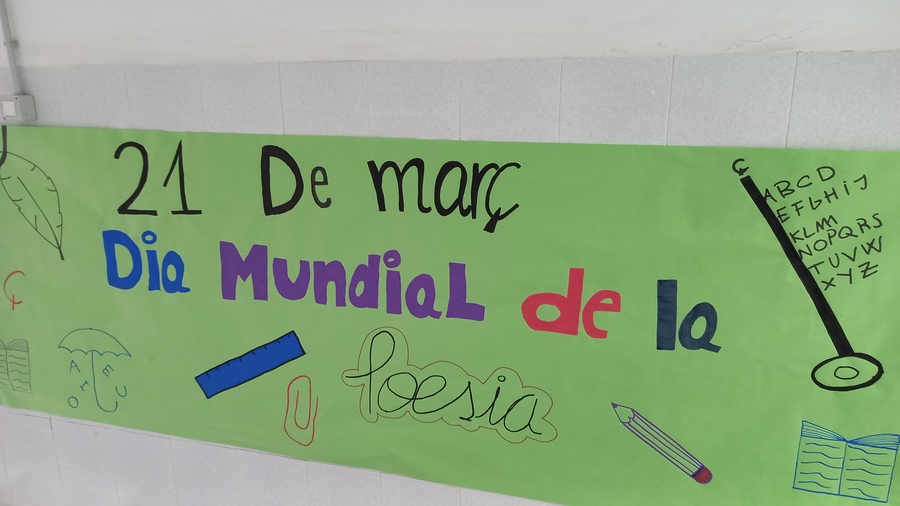 21 De març
Dia Mundial de la
Poesia
Ç
A E I O U
Ç
ABCD
EFGHIJ
KLMN
NOPQRS
TUVW
XYZ